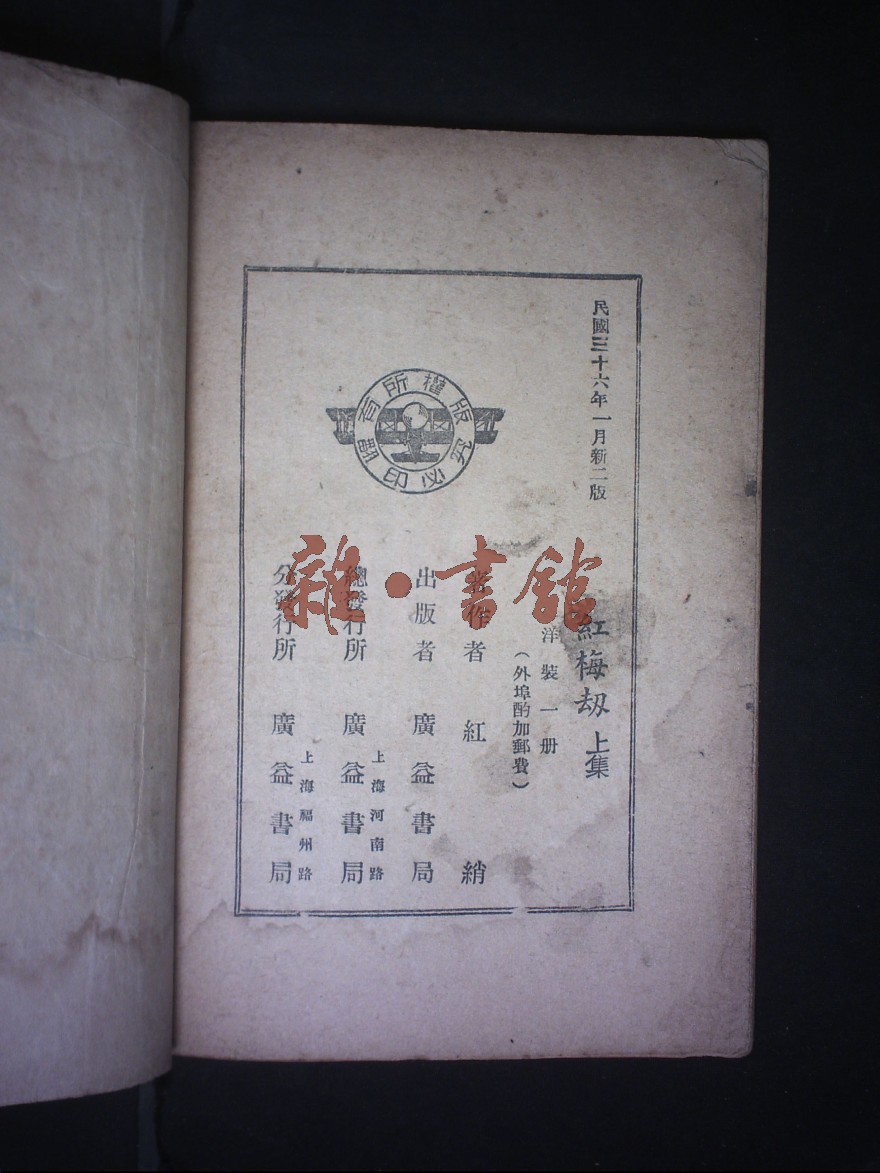 民國三十六年一月新二版
紅梅刼 上集
洋裝一册
（外埠酌加郵費）
著作者 紅綃
出版者 廣益書局
總發行所 上海河南路 廣益書局
分發行所 上海福州路 廣益書局
版權所有
翻印必究
雜·書館